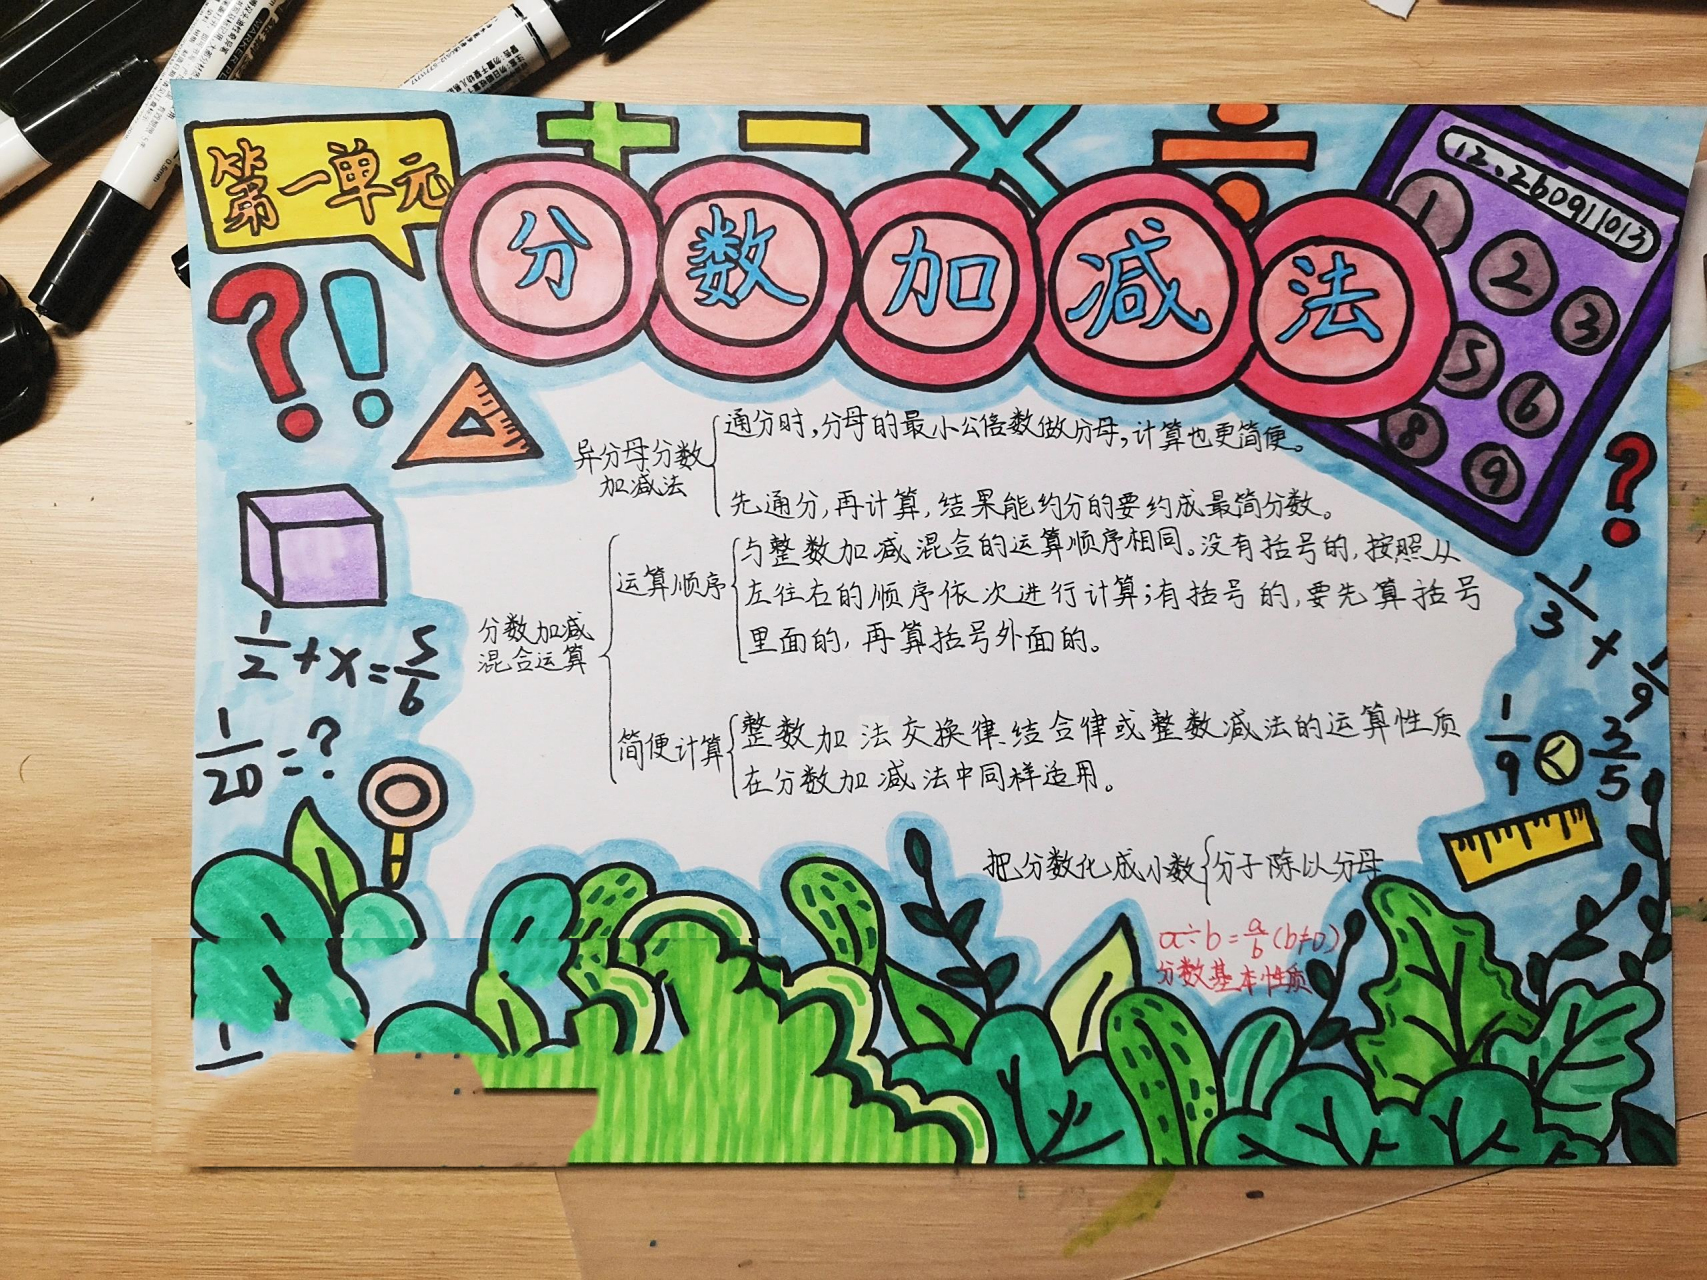 第一单元
分数加减法
12.260911013
1
2
3
5
6
8
9
异分母分数
加减法
通分时,分母的最小公倍数做分母,计算也更简便。
先通分,再计算,结果能约分的要约成最简分数。
分数加减
混合运算
运算顺序
与整数加减混合的运算顺序相同。没有括号的,按照从
左往右的顺序依次进行计算;有括号的,要先算括号
里面的,再算括号外面的。
简便计算
整数加法交换律、结合律或整数减法的运算性质
在分数加减法中同样适用。
把分数化成小数
分子除以分母
a÷b=a/b(b≠0)
分数基本性质
1/2+x=5/6
1/20=?
1/3+1/9
1/9<3/5